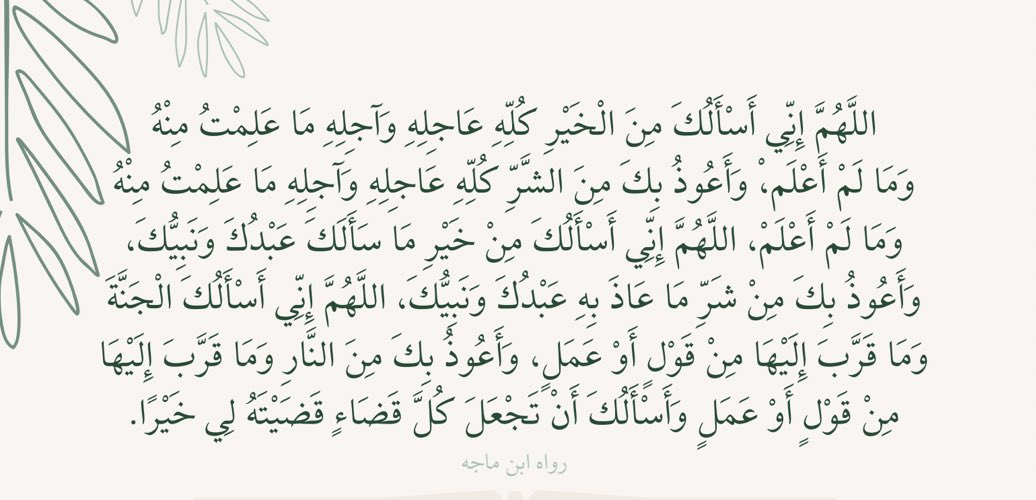 اللَّهُمَّ إِنِّي أَسْأَلُكَ مِنَ الْخَيْرِ كُلِّهِ عَاجِلِهِ وَآجِلِهِ مَا عَلِمْتُ مِنْهُ
وَمَا لَمْ أَعْلَم،ْ وَأَعُوذُ بِكَ مِنَ الشَّرِّ كُلِّهِ عَاجِلِهِ وَآجِلِهِ مَا عَلِمْتُ مِنْهُ
وَمَا لَمْ أَعْلَمْ، اللَّهُمَّ إِنِّي أَسْأَلُكَ مِنْ خَيْرِ مَا سَأَلَكَ عَبْدُكَ وَنَبِيُّكَ،
وَأَعُوذُ بِكَ مِنْ شَرِّ مَا عَاذَ بِهِ عَبْدُكَ وَنَبِيُّكَ، اللَّهُمَّ إِنِّي أَسْأَلُكَ الْجَنَّةَ
وَمَا قَرَّبَ إِلَيْهَا مِنْ قَوْلٍ أَوْ عَمَلٍ، وَأَعُوذُ بِكَ مِنَ النَّارِ وَمَا قَرَّبَ إِلَيْهَا
مِنْ قَوْلٍ أَوْ عَمَلٍ وَأَسْأَلُكَ أَنْ تَجْعَلَ كُلَّ قَضَاءٍ قَضَيْتَهُ لِي خَيْرًا.
رواه ابن ماجه